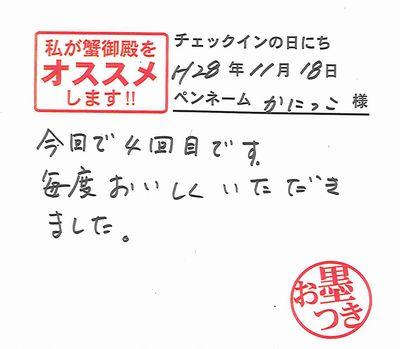 私が蟹御殿を
オススメ
します!!
チェックインの日にち
H28年11月18日
ペンネーム かにっこ 様
今回で4回目です。
毎度おいしくいただき
ました。
お墨つき